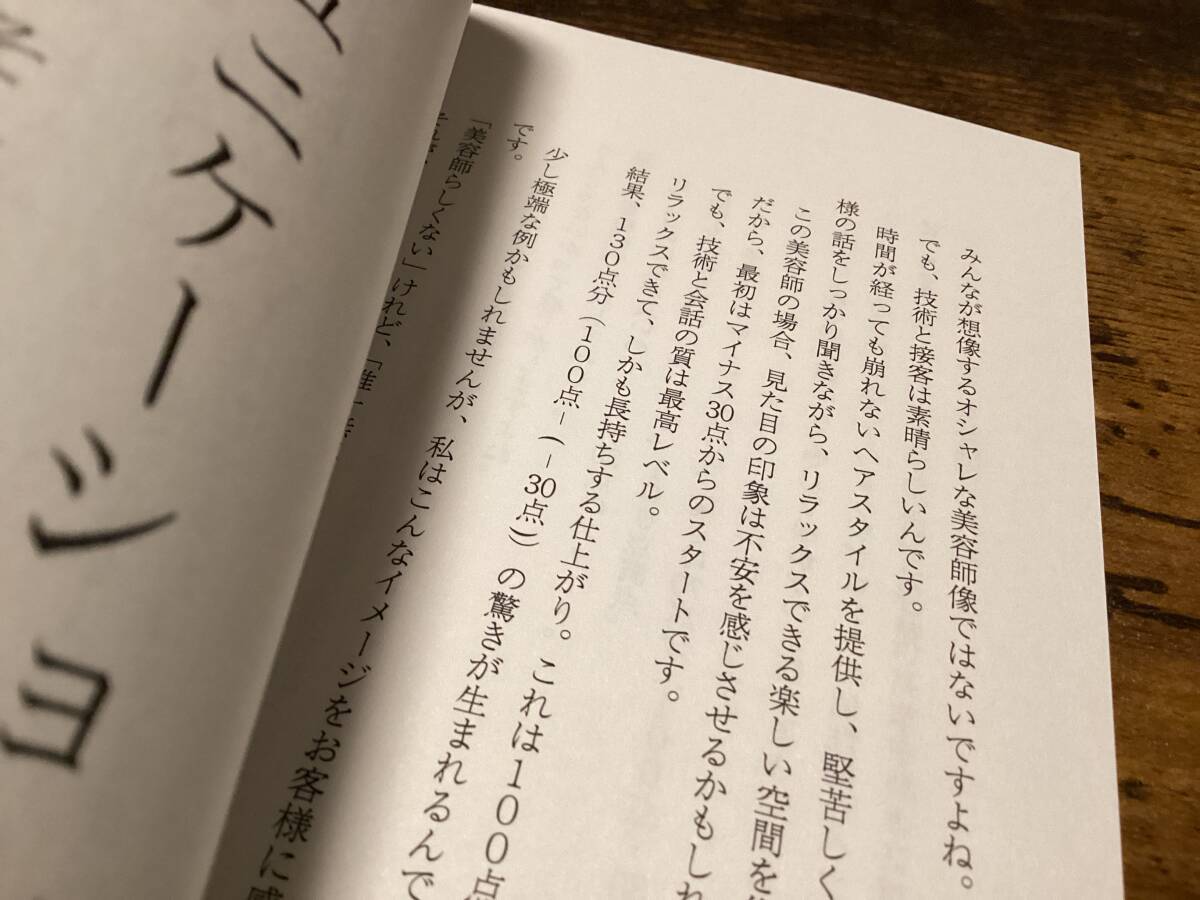 みんなが想像するオシャレな美容師像ではないですよね。
でも、技術と接客は素晴らしいんです。
時間が経っても崩れないヘアスタイルを提供し、堅苦しく
様の話をしっかり聞きながら、リラックスできる楽しい空間を
この美容師の場合、見た目の印象は不安を感じさせるかもしれ
だから、最初はマイナス30点からのスタートです。
でも、技術と会話の質は最高レベル。
リラックスできて、しかも長持ちする仕上がり。これは100点
結果、130点分（100点−(−30点)）の驚きが生まれるんで
です。
少し極端な例かもしれませんが、私はこんなイメージをお客様に
「美容師らしくない」けれど、
ュニケーショ